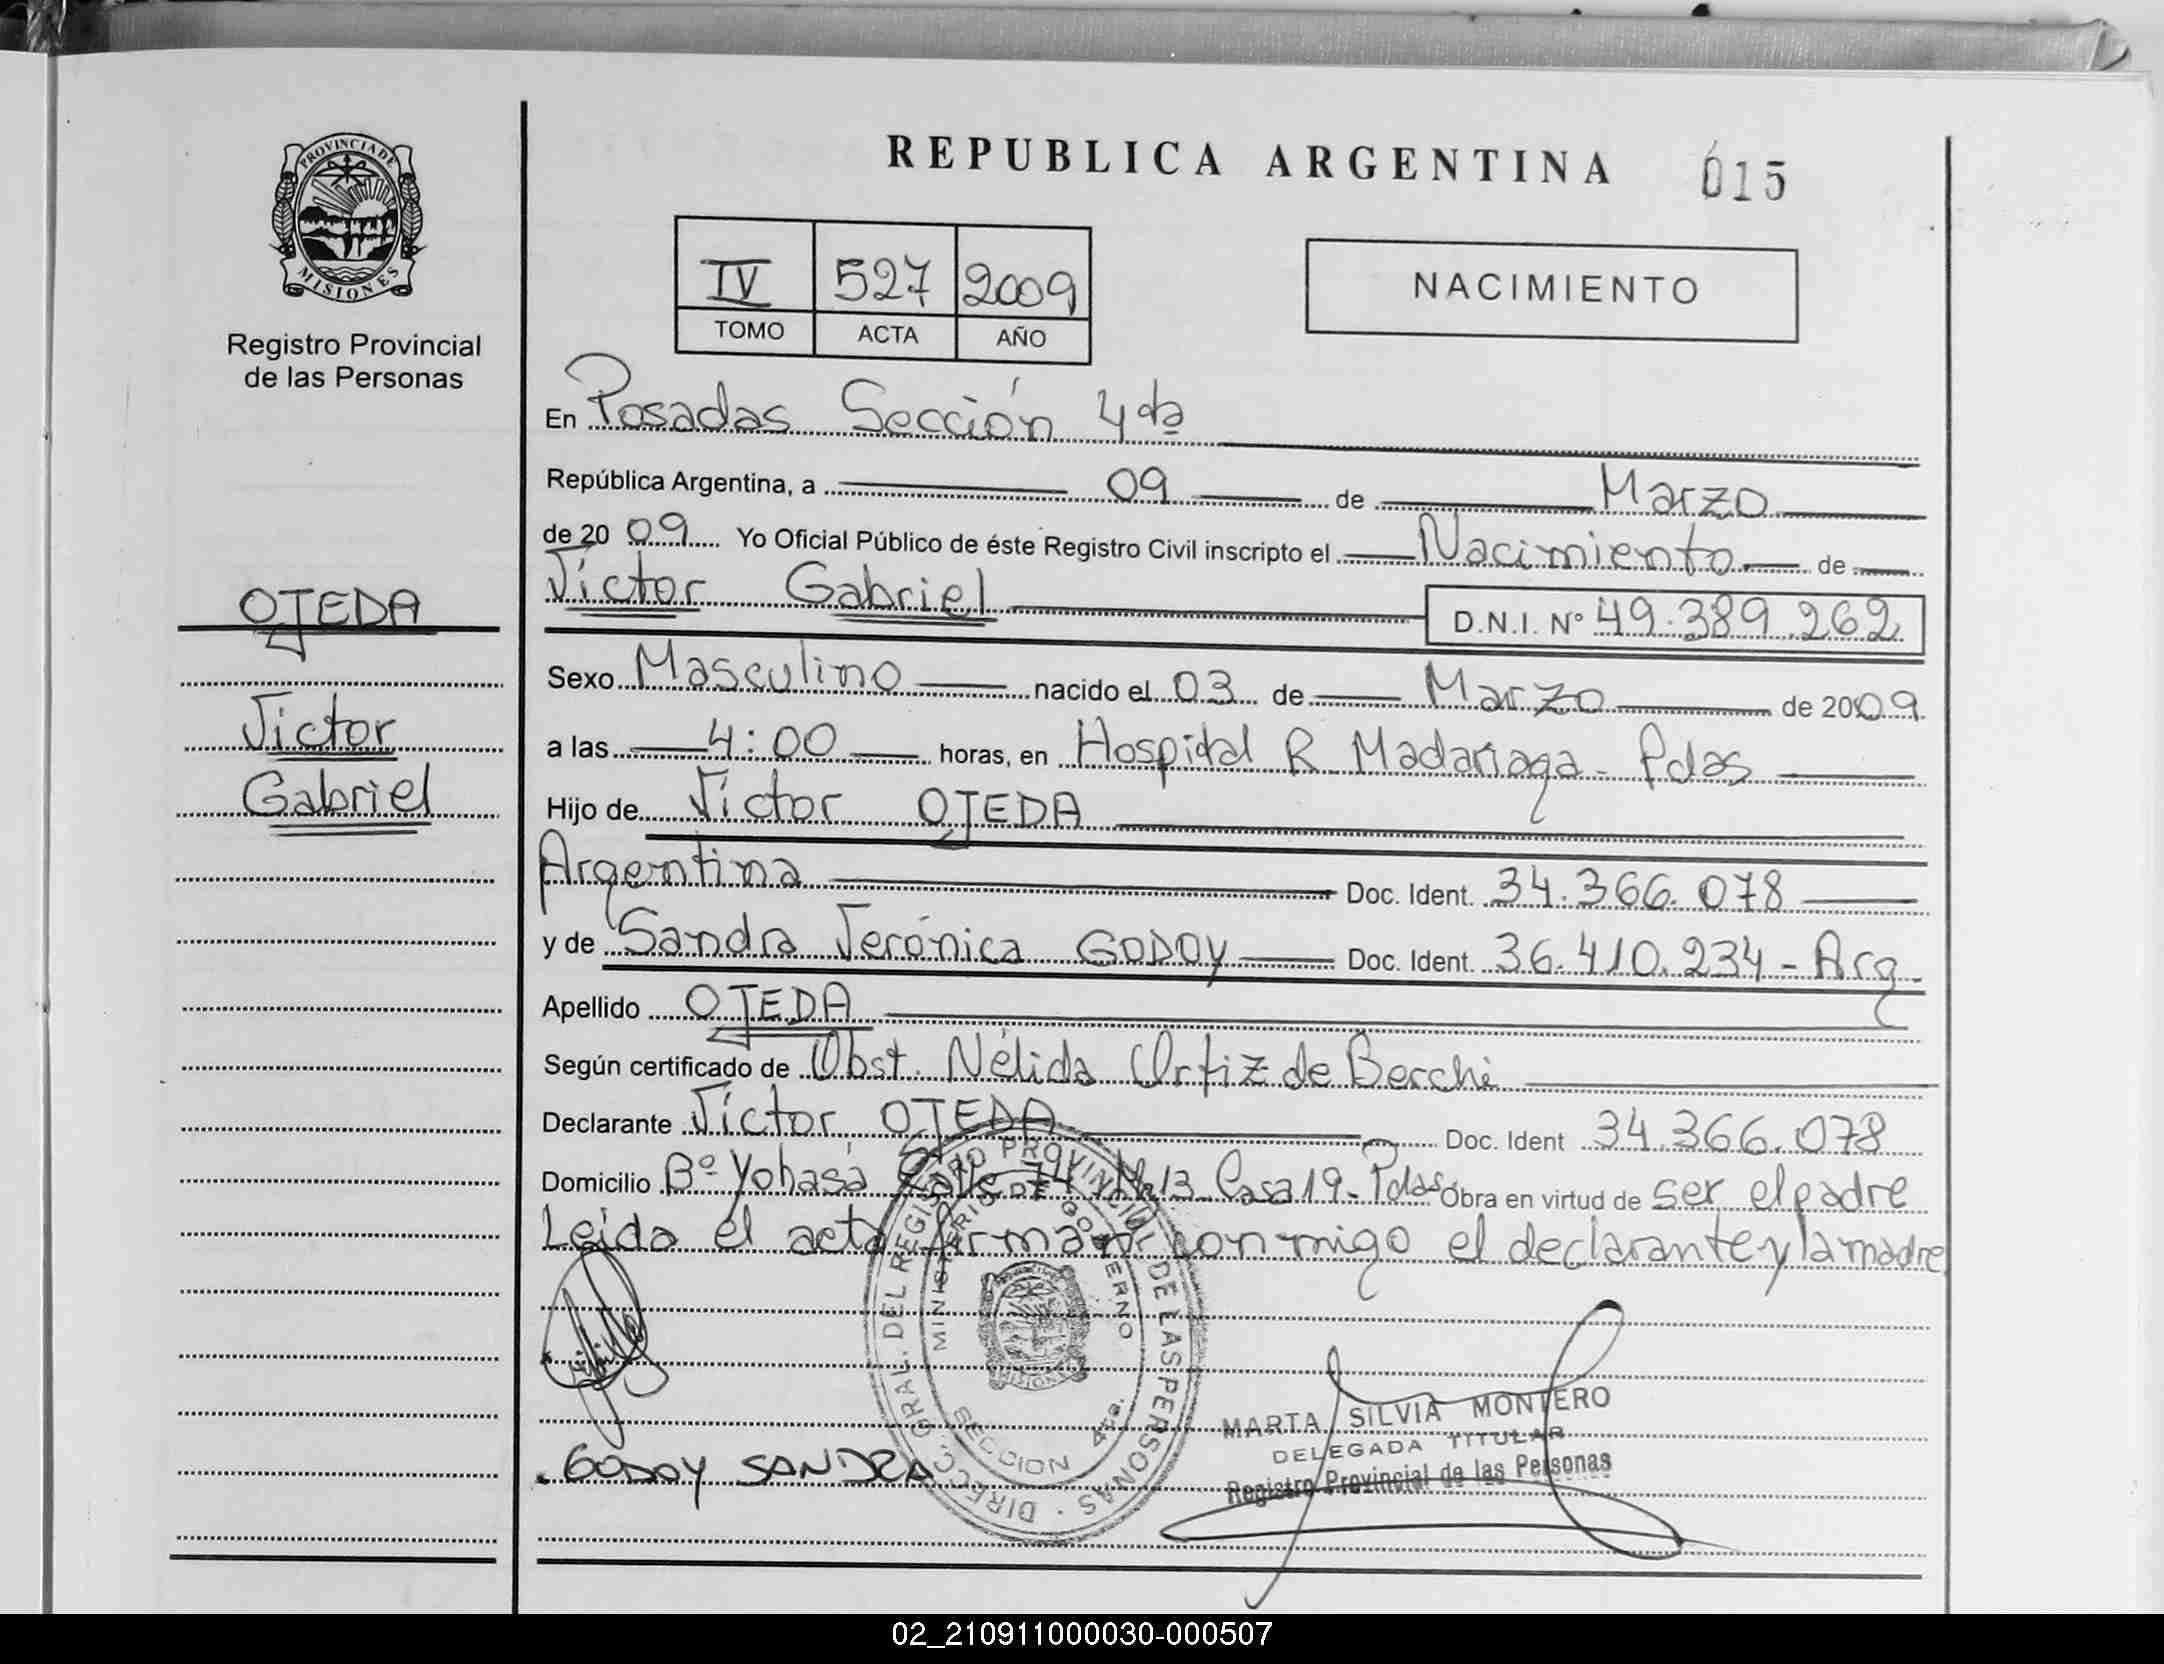 REPUBLICA ARGENTINA 015
PROVINCIA DE MISIONES
Registro Provincial
de las Personas
IV 527 2009
TOMO ACTA AÑO
NACIMIENTO
En Posadas Sección 4ta
República Argentina, a 09 de Marzo
de 2009 Yo Oficial Público de éste Registro Civil inscripto el Nacimiento de
Víctor Gabriel D.N.I. Nº 49.389.262
OJEDA
Víctor
Gabriel
Sexo Masculino nacido el 03 de Marzo de 2009
a las 4:00 horas, en Hospital R. Madariaga - Pdas
Hijo de Víctor OJEDA
Argentina Doc. Ident. 34.366.078
y de Sandra Verónica GODOY Doc. Ident. 36.410.234 - Arg
Apellido OJEDA
Según certificado de Obst. Nélida Ortiz de Berchi
Declarante Víctor OJEDA Doc. Ident 34.366.078
Domicilio Bº Yohasá Calle 74 Mz 13 Casa 19 - Pdas Obra en virtud de ser el padre
Leida el acta firman conmigo el declarante y la madre
DIRECC. GRAL. DEL REGISTRO PROVINCIAL DE LAS PERSONAS
MINISTERIO DE GOBIERNO
MISIONES
SECCION 4ta.
MARTA SILVIA MONTERO
DELEGADA TITULAR
Registro Provincial de las Personas
GODOY SANDRA
02_210911000030-000507